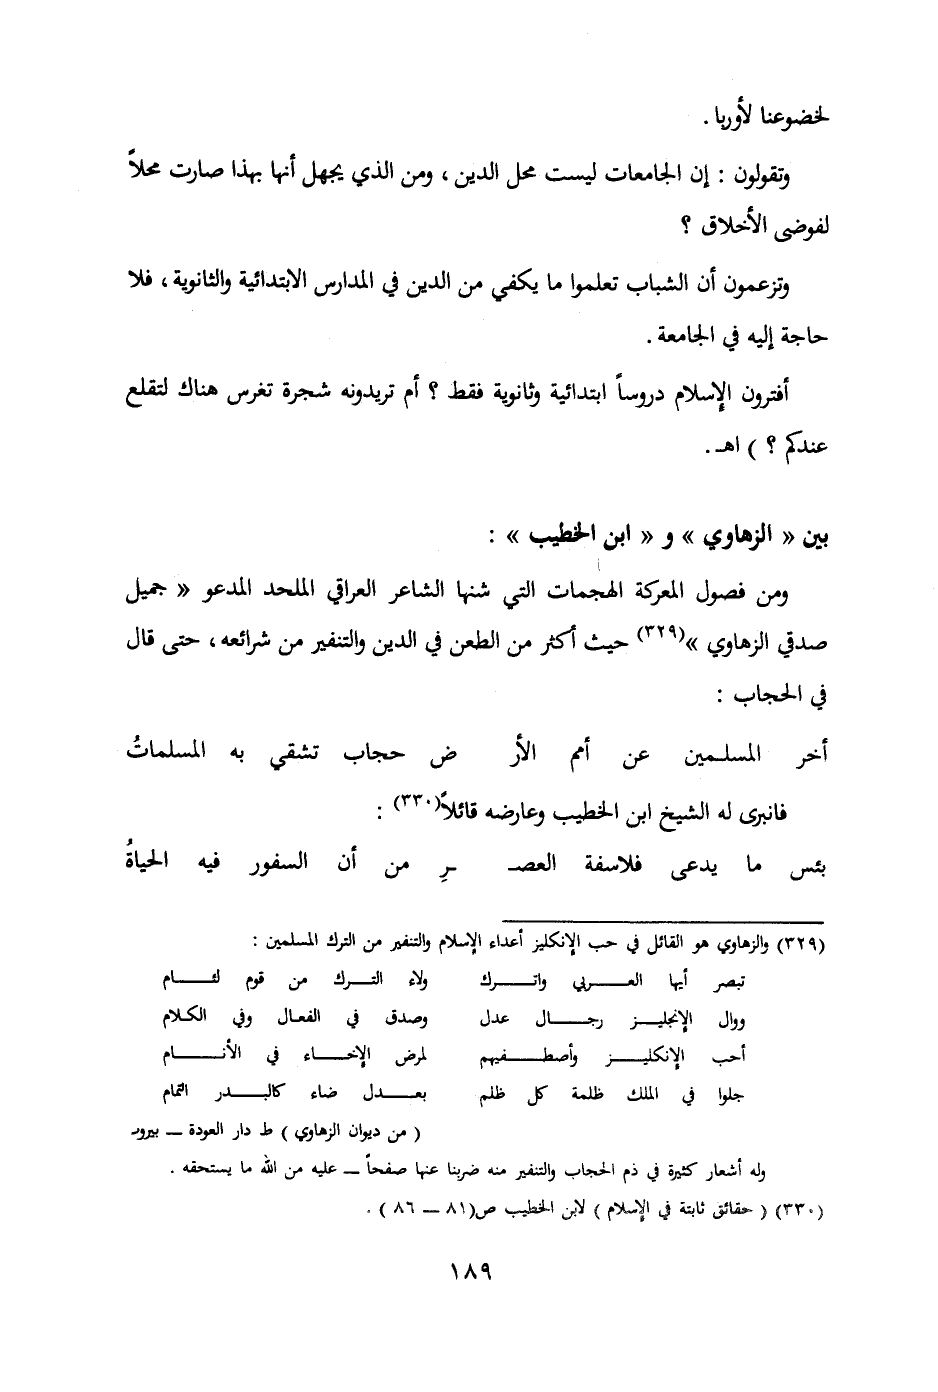 لخضوعنا لأوربا .
وتقولون : إن الجامعات ليست محل الدين ، ومن الذي يجهل أنها بهذا صارت محلاً
لفوضى الأخلاق ؟
وتزعمون أن الشباب تعلموا ما يكفي من الدين في المدارس الابتدائية والثانوية ، فلا
حاجة إليه في الجامعة .
أفترون الإسلام دروساً ابتدائية وثانوية فقط ؟ أم تريدونه شجرة تغرس هناك لتقلع
عندكم ؟ ) اهـ .
بين « الزهاوي » و « ابن الخطيب » :
ومن فصول المعركة الهجمات التي شنها الشاعر العراقي الملحد المدعو « جميل
صدقي الزهاوي »(٣٢٩) حيث أكثر من الطعن في الدين والتنفير من شرائعه ، حتى قال
في الحجاب :
أخر المسلـمين عن أمم الأر ض حجاب تشقي به المسلماتُ
فانبرى له الشيخ ابن الخطيب وعارضه قائلاً(٣٣٠) :
بئس ما يدعى فلاسفة العصـ ـرِ من أن السفور فيه الحياةُ
(٣٢٩) والزهاوي هو القائل في حب الإنكليز أعداء الإسلام والتنفير من الترك المسلمين :
تبصر أيها العـــربي واتــرك ولاء التــرك من قوم لئــــام
ووال الإنجليــز رجــــال عدل وصدق في الفعال وفي الكلام
أحب الإنكليــــز وأصطــفيهم لمرض الإخــاء في الأنــــام
جلوا في الملك ظلمة كل ظلم بعــــدل ضاء كالبــدر التمام
( من ديوان الزهاوي ) ط دار العودة ــ بيروت
وله أشعار كثيرة في ذم الحجاب والتنفير منه ضربنا عنها صفحاً ــ عليه من الله ما يستحقه .
(٣٣٠) ( حقائق ثابتة في الإسلام ) لابن الخطيب ص(٨١ ــ ٨٦ ) .
١٨٩